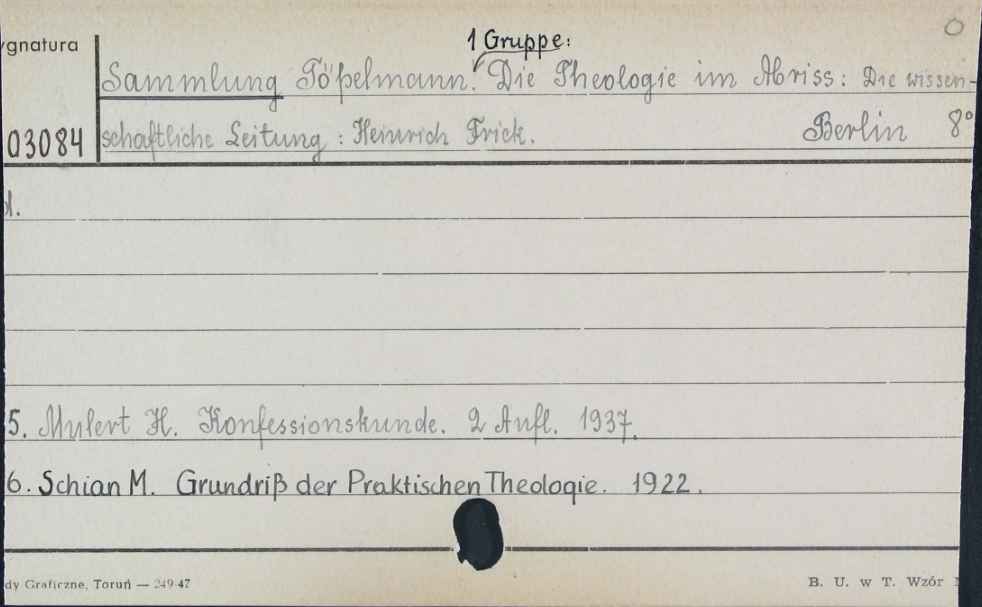 ygnatura
1 Gruppe:
Sammlung Tößelmann. Die Theologie im Abriss: Die wissen-
03084 schaftliche Leitung: Heinrich Frick. Berlin 8°
5. Mulert H. Konfessionskunde. 2 Aufl. 1937.
6. Schian M. Grundriß der Praktischen Theologie. 1922.
dy Graficzne, Toruń — 249-47 B. U. w T. Wzór